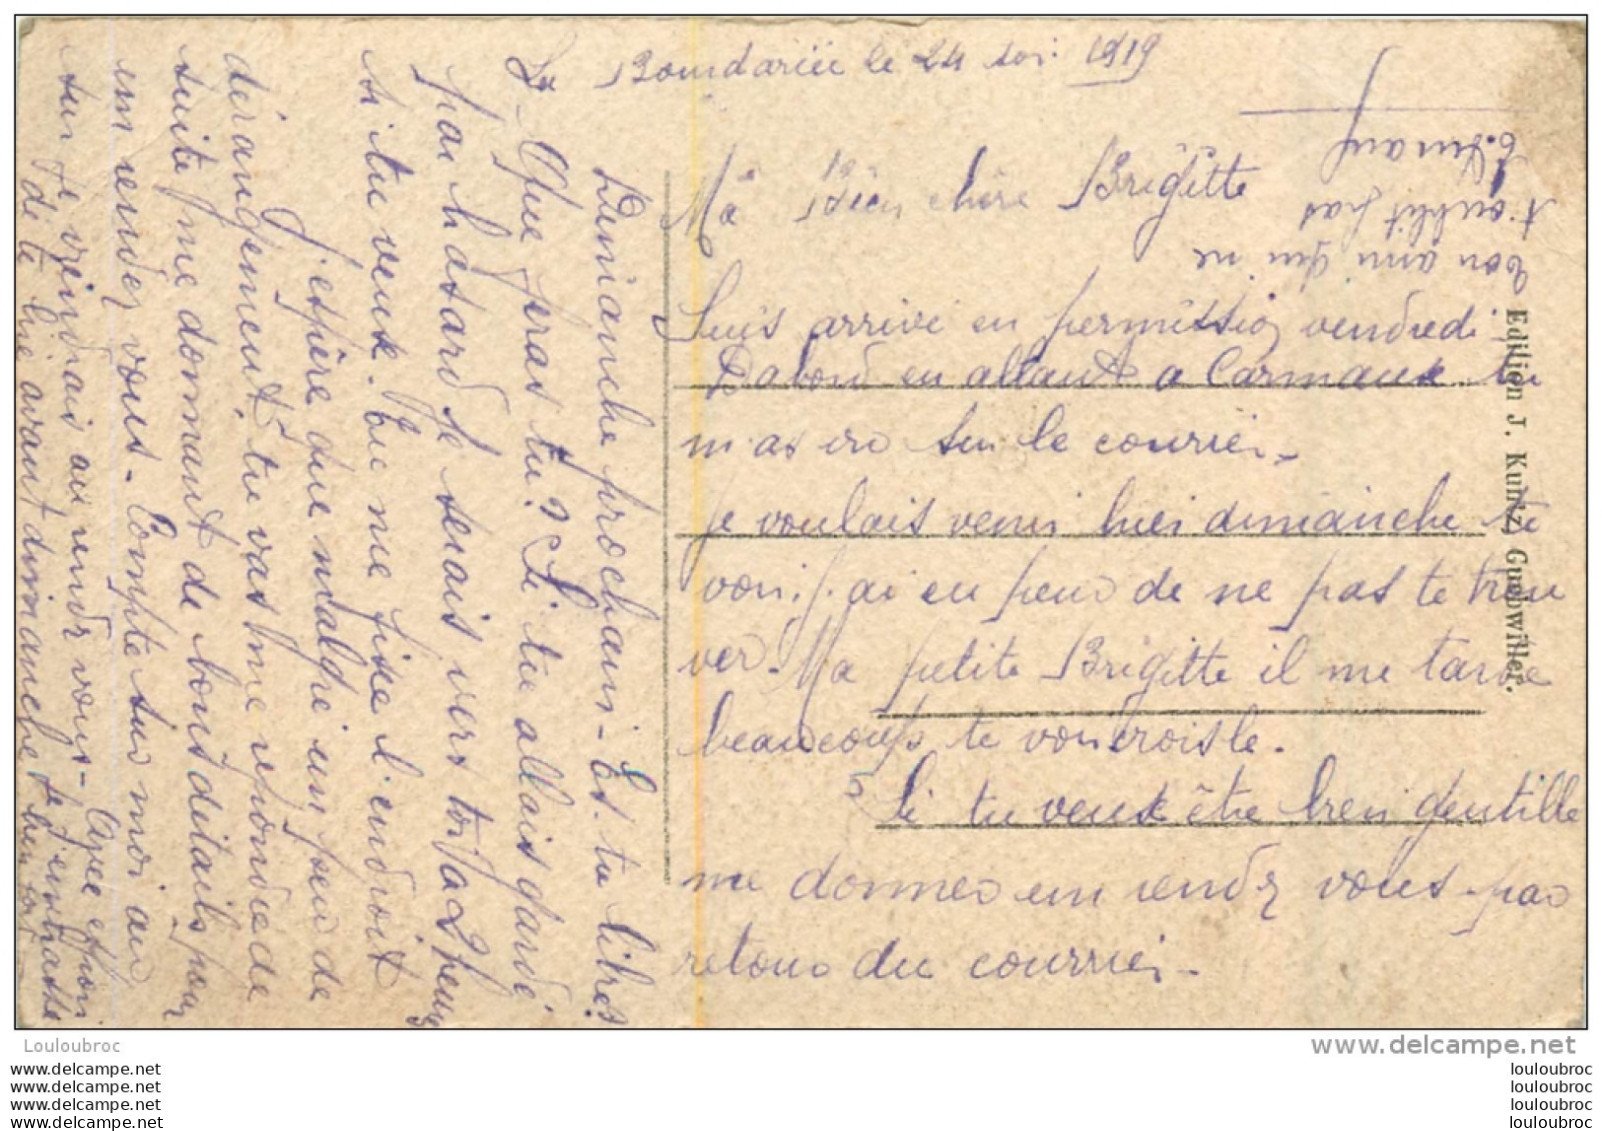 le 24 1919
Ma Bien chère Brigitte
Suis arrivé en permission vendredi.
Dabord en allant a Carmaux tu
m'as vu sur le courrier.
je voulais venir hier dimanche te
voir, j'ai eu peur de ne pas te trou
ver. Ma petite Brigitte il me tarde
beaucoup te voir crois le.
Si tu veux être bien gentille
me donner un rendez vous par
retour du courrier.
Dimanche prochain. Es. tu libre?
Que feras tu? Si tu allais garde
par hasard je serais vers toi a 2 heures
si tu veux. tu me fixe l'endroit
J'espère que malgré un peu de
dérangement, tu vas me repondre de
suite me donnant de bons détails pour
un rendez vous. Compte sur moi au
sur je viendrais au rendr vous. Avec
de te lire avant dimanche je t'embrasse bien
ton ami qui ne
t'oublit pas
Edition J. Kuntz, Guebwiller.
Louloubroc
www.delcampe.net
www.delcampe.net
www.delcampe.net
www.delcampe.net
www.delcampe.net
louloubroc
louloubroc
louloubroc
louloubroc